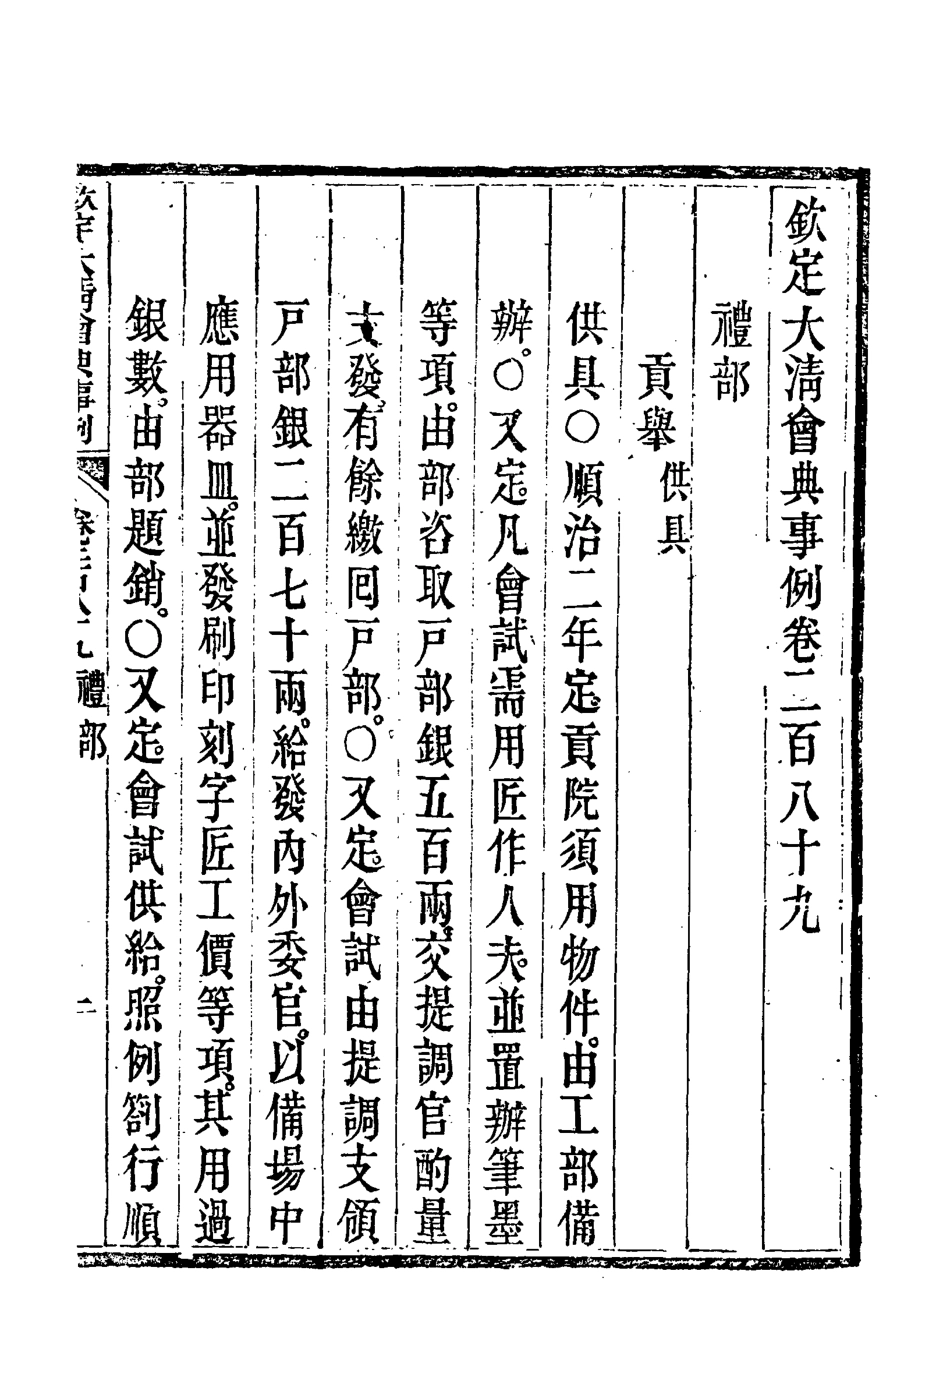 欽定大清會典事例卷二百八十九
禮部
貢舉 供具
供具○順治二年定。貢院須用物件。由工部備
辦。○又定。凡會試需用匠作人夫。並置辦筆墨
等項。由部咨取戸部銀五百兩。交提調官酌量
支發。有餘繳囘戸部。○又定。會試由提調支領
戸部銀二百七十兩。給發內外委官。以備場中
應用器皿。並發刷印刻字匠工價等項。其用過
銀數。由部題銷。○又定。會試供給。照例劄行順
欽定大清會典事例 卷二百八十九 禮部 一